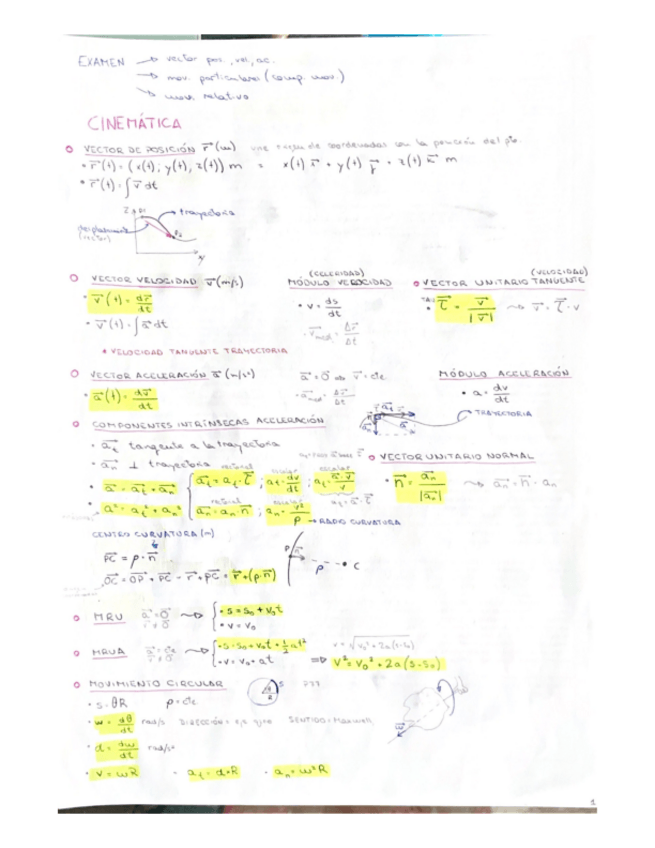 EXAMEN → vector pos., vel., ac.
→ mov. particulares (comp. mov.)
→ mov. relativo
CINEMÁTICA
VECTOR DE POSICIÓN r⃗ (m) une origen de coordenadas con la posición del pto.
• r⃗(t) = (x(t); y(t), z(t)) m = x(t) i⃗ + y(t) j⃗ + z(t) k⃗ m
• r⃗(t) = ∫ v⃗ dt
trayectoria
desplazamiento
(vector)
VECTOR VELOCIDAD v⃗ (m/s)
• v⃗(t) = dr⃗/dt
• v⃗(t) = ∫ a⃗ dt
(CELERIDAD)
MÓDULO VELOCIDAD
• v = ds/dt
• v⃗med. = Δr⃗/Δt
(VELOCIDAD)
VECTOR UNITARIO TANGENTE
TAU • τ⃗ = v⃗/|v⃗| → v⃗ = τ⃗ · v
* VELOCIDAD TANGENTE TRAYECTORIA
VECTOR ACELERACIÓN a⃗ (m/s²)
• a⃗(t) = dv⃗/dt
a⃗ = 0⃗ ⇒ v⃗ = cte
• a⃗med = Δv⃗/Δt
MÓDULO ACELERACIÓN
• a = dv/dt
TRAYECTORIA
COMPONENTES INTRÍNSECAS ACELERACIÓN
• a⃗t tangente a la trayectoria
• a⃗n ⊥ trayectoria
• a⃗ = a⃗t + a⃗n
• a² = at² + an²
vectorial escalar escalar
a⃗t = at · τ⃗ ; at = dv/dt ; at = a⃗ · v⃗/v
at = a⃗ · τ⃗
vectorial escalar
a⃗n = an n⃗ ; an = v²/ρ → RADIO CURVATURA
VECTOR UNITARIO NORMAL
• n⃗ = a⃗n/|a⃗n| → a⃗n = n⃗ · an
CENTRO CURVATURA (m)
P⃗C = ρ · n⃗
O⃗C = O⃗P + P⃗C = r⃗ + P⃗C = r⃗ + (ρ · n⃗)
P n⃗ ρ C
MRU a⃗ = 0⃗ v⃗ ≠ 0⃗ → • s = s₀ + v₀t
• v = v₀
MRUA a⃗ = cte v⃗ ≠ 0⃗ → • s = s₀ + v₀t + ½ at²
• v = v₀ + at
v = √v₀² + 2a(s-s₀)
⇒ v² = v₀² + 2a(s-s₀)
MOVIMIENTO CIRCULAR
• s = θR ρ = cte
• ω = dθ/dt rad/s DIRECCIÓN = eje giro SENTIDO = Maxwell
• α = dω/dt rad/s²
• v = ωR • at = α · R • an = ω²R
1